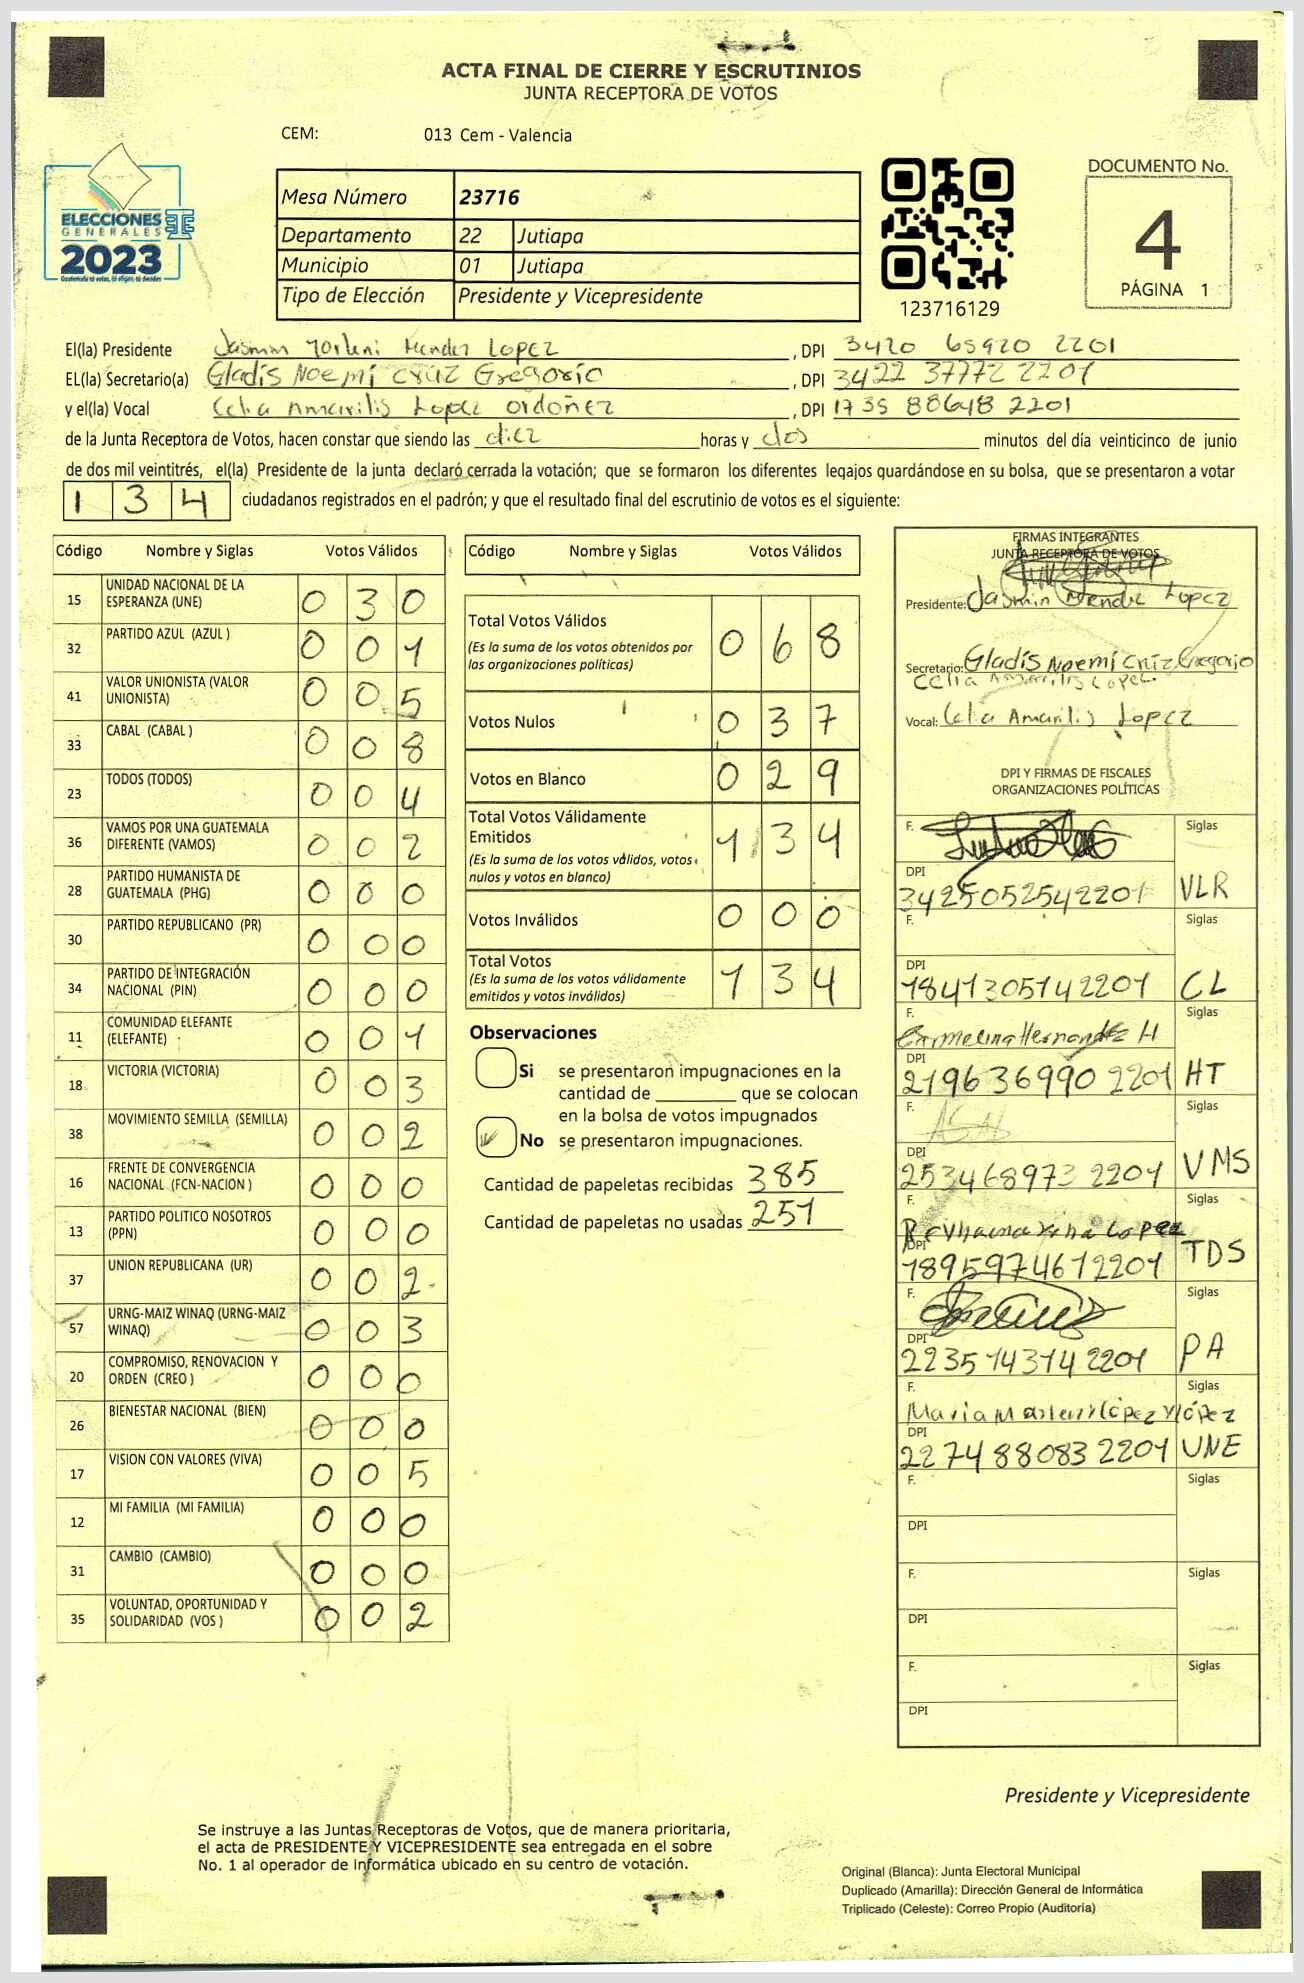 ACTA FINAL DE CIERRE Y ESCRUTINIOS
JUNTA RECEPTORA DE VOTOS
CEM: 013 Cem - Valencia
ELECCIONES
GENERALES
2023
Guatemala tú votas, tú eliges, tú decides
Mesa Número 23716
Departamento 22 Jutiapa
Municipio 01 Jutiapa
Tipo de Elección Presidente y Vicepresidente
123716129
DOCUMENTO No.
4
PÁGINA 1
El(la) Presidente Jasmin Yorleni Mendez Lopez, DPI 3420 65920 2201
EL(la) Secretario(a) Gladis Noemi Cruz Gregorio, DPI 3422 37772 2201
y el(la) Vocal Celia Amarilis Lopez Ordoñez, DPI 1735 88648 2201
de la Junta Receptora de Votos, hacen constar que siendo las diez horas y dos minutos del día veinticinco de junio
de dos mil veintitrés, el(la) Presidente de la junta declaró cerrada la votación; que se formaron los diferentes legajos guardándose en su bolsa, que se presentaron a votar
1 3 4 ciudadanos registrados en el padrón; y que el resultado final del escrutinio de votos es el siguiente:
Código Nombre y Siglas Votos Válidos
15 UNIDAD NACIONAL DE LA ESPERANZA (UNE) 0 3 0
32 PARTIDO AZUL (AZUL ) 0 0 1
41 VALOR UNIONISTA (VALOR UNIONISTA) 0 0 5
33 CABAL (CABAL ) 0 0 8
23 TODOS (TODOS) 0 0 4
36 VAMOS POR UNA GUATEMALA DIFERENTE (VAMOS) 0 0 2
28 PARTIDO HUMANISTA DE GUATEMALA (PHG) 0 0 0
30 PARTIDO REPUBLICANO (PR) 0 0 0
34 PARTIDO DE INTEGRACIÓN NACIONAL (PIN) 0 0 0
11 COMUNIDAD ELEFANTE (ELEFANTE) 0 0 1
18 VICTORIA (VICTORIA) 0 0 3
38 MOVIMIENTO SEMILLA (SEMILLA) 0 0 2
16 FRENTE DE CONVERGENCIA NACIONAL (FCN-NACION ) 0 0 0
13 PARTIDO POLITICO NOSOTROS (PPN) 0 0 0
37 UNION REPUBLICANA (UR) 0 0 2
57 URNG-MAIZ WINAQ (URNG-MAIZ WINAQ) 0 0 3
20 COMPROMISO, RENOVACION Y ORDEN (CREO ) 0 0 0
26 BIENESTAR NACIONAL (BIEN) 0 0 0
17 VISION CON VALORES (VIVA) 0 0 5
12 MI FAMILIA (MI FAMILIA) 0 0 0
31 CAMBIO (CAMBIO) 0 0 0
35 VOLUNTAD, OPORTUNIDAD Y SOLIDARIDAD (VOS ) 0 0 2
Código Nombre y Siglas Votos Válidos
Total Votos Válidos 0 6 8
(Es la suma de los votos obtenidos por
las organizaciones políticas)
Votos Nulos 0 3 7
Votos en Blanco 0 2 9
Total Votos Válidamente
Emitidos 1 3 4
(Es la suma de los votos válidos, votos
nulos y votos en blanco)
Votos Inválidos 0 0 0
Total Votos 1 3 4
(Es la suma de los votos válidamente
emitidos y votos inválidos)
Observaciones
Si se presentaron impugnaciones en la
cantidad de ________ que se colocan
en la bolsa de votos impugnados
No se presentaron impugnaciones.
Cantidad de papeletas recibidas 385
Cantidad de papeletas no usadas 251
FIRMAS INTEGRANTES
JUNTA RECEPTORA DE VOTOS
Presidente: Jasmin Mendez Lopez
Secretario: Gladis Noemi Cruz Gregorio
Celia Amarilis Lopez
Vocal: Celia Amarilis Lopez
DPI Y FIRMAS DE FISCALES
ORGANIZACIONES POLÍTICAS
F. Siglas
DPI 3425052542201 VLR
F. Siglas
DPI 1841305142201 CL
F. Ermelina Hernandez H Siglas
DPI 219636990 2201 HT
F. Siglas
DPI 253468973 2201 VMS
F. Siglas
DPI 1895974612201 TDS
F. Siglas
DPI 2235143142201 PA
F. Siglas
DPI 2274 88083 2201 UNE
F. Siglas
DPI
F. Siglas
DPI
F. Siglas
DPI
Presidente y Vicepresidente
Se instruye a las Juntas Receptoras de Votos, que de manera prioritaria,
el acta de PRESIDENTE Y VICEPRESIDENTE sea entregada en el sobre
No. 1 al operador de informática ubicado en su centro de votación.
Original (Blanca): Junta Electoral Municipal
Duplicado (Amarilla): Dirección General de Informática
Triplicado (Celeste): Correo Propio (Auditoría)